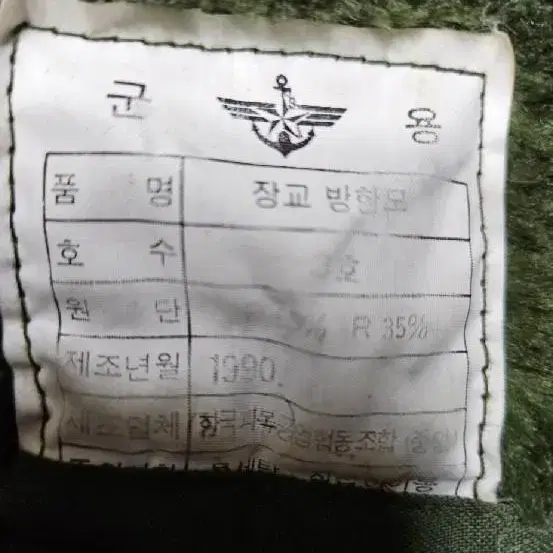 군 용
품 명 장교 방한모
호 수 호
원 단 R 35%
제조년월 1990.
제조업체 한국피복공업협동조합